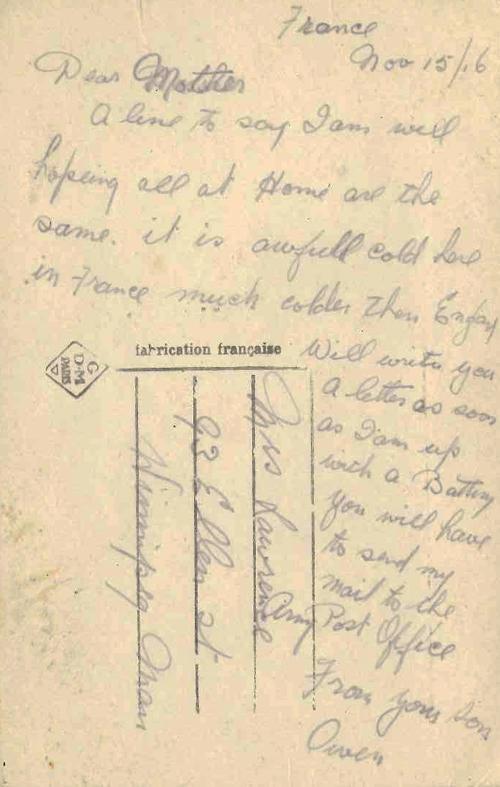 France
Nov 15/16
Dear Mother
A line to say I am well
hopeing all at Home are the
same. it is awfull cold here
in France much colder then England
fabrication française
G
D·M
PARIS
Will write you
a letter as soon
as I am up
with a Battery
you will have
to send my
mail to the
Army Post Office
From your Son
Owen
Mrs Lawrence
93 Ellen st
Winnipeg Man